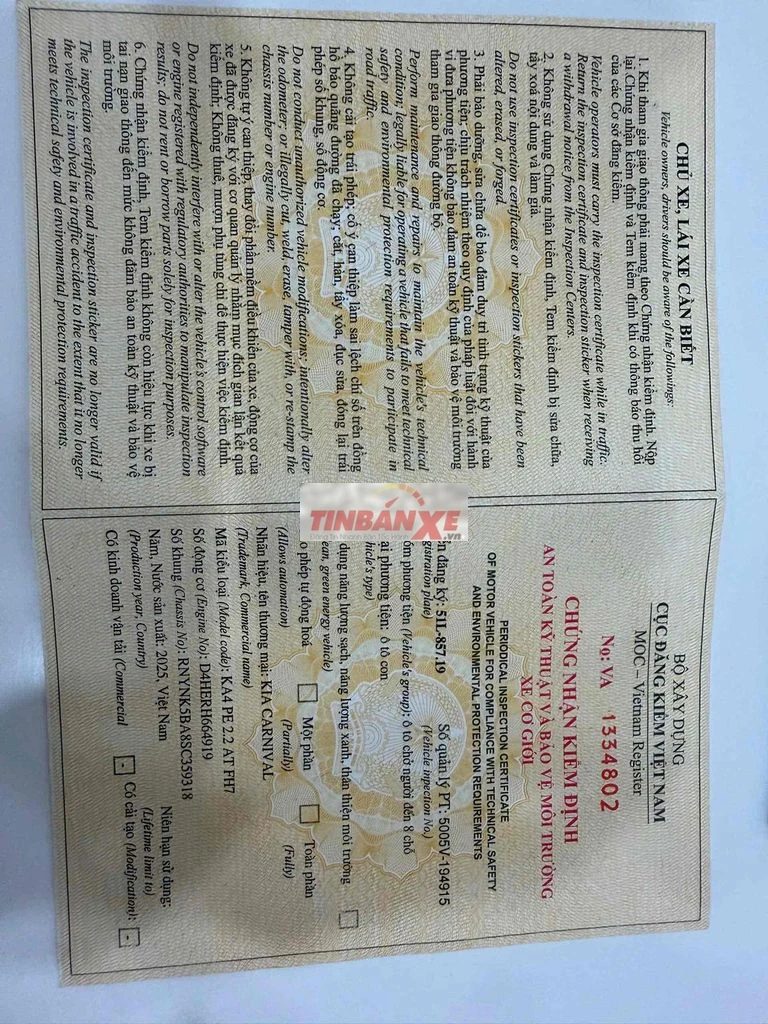 CHỦ XE, LÁI XE CẦN BIẾT
Vehicle owners, drivers should be aware of the followings:
1. Khi tham gia giao thông phải mang theo Chứng nhận kiểm định. Nộp
lại Chứng nhận kiểm định và Tem kiểm định khi có thông báo thu hồi
của các Cơ sở đăng kiểm.
Vehicle operators must carry the inspection certificate while in traffic.
Return the inspection certificate and inspection sticker when receiving
a withdrawal notice from the Inspection Centers.
2. Không sử dụng Chứng nhận kiểm định, Tem kiểm định bị sửa chữa,
tẩy xoá nội dung và làm giả.
Do not use inspection certificates or inspection stickers that have been
altered, erased, or forged.
3. Phải bảo dưỡng, sửa chữa để bảo đảm duy trì tình trạng kỹ thuật của
phương tiện; chịu trách nhiệm theo quy định của pháp luật đối với hành
vi đưa phương tiện không bảo đảm an toàn kỹ thuật và bảo vệ môi trường
tham gia giao thông đường bộ.
Perform maintenance and repairs to maintain the vehicle's technical
condition; legally liable for operating a vehicle that fails to meet technical
safety and environmental protection requirements to participate in
road traffic.
4. Không cải tạo trái phép; cố ý can thiệp làm sai lệch chỉ số trên đồng
hồ báo quãng đường đã chạy; cắt, hàn, tẩy xóa, đục sửa, đóng lại trái
phép số khung, số động cơ
Do not conduct unauthorized vehicle modifications; intentionally alter
the odometer; or illegally cut, weld, erase, tamper with, or re-stamp the
chassis number or engine number.
5. Không tự ý can thiệp, thay đổi phần mềm điều khiển của xe, động cơ của
xe đã được đăng ký với cơ quan quản lý nhằm mục đích gian lận kết quả
kiểm định; Không thuê, mượn phụ tùng chỉ để thực hiện việc kiểm định.
Do not independently interfere with or alter the vehicle's control software
or engine registered with regulatory authorities to manipulate inspection
results; do not rent or borrow parts solely for inspection purposes.
6. Chứng nhận kiểm định, Tem kiểm định không còn hiệu lực khi xe bị
tai nạn giao thông đến mức không đảm bảo an toàn kỹ thuật và bảo vệ
môi trường.
The inspection certificate and inspection sticker are no longer valid if
the vehicle is involved in a traffic accident to the extent that it no longer
meets technical safety and environmental protection requirements.
BỘ XÂY DỰNG
CỤC ĐĂNG KIỂM VIỆT NAM
MOC – Vietnam Register
No: VA 1334802
CHỨNG NHẬN KIỂM ĐỊNH
AN TOÀN KỸ THUẬT VÀ BẢO VỆ MÔI TRƯỜNG
XE CƠ GIỚI
PERIODICAL INSPECTION CERTIFICATE
OF MOTOR VEHICLE FOR COMPLIANCE WITH TECHNICAL SAFETY
AND ENVIRONMENTAL PROTECTION REQUIREMENTS
đăng ký: 51L-857.19 Số quản lý PT: 5005V-194915
plate) (Vehicle inpection No.)
phương tiện (Vehicle's group): ô tô chở người đến 8 chỗ
phương tiện: ô tô con
type)
dụng năng lượng sạch, năng lượng xanh, thân thiện môi trường
green energy vehicle)
phép tự động hoá Một phần Toàn phần
(Allows automation) (Partially) (Fully)
Nhãn hiệu, tên thương mại: KIA CARNIVAL
(Trademark, Commercial name)
Mã kiểu loại (Model code): KA4 PE 2.2 AT FH7
Số động cơ (Engine No): D4HERH664919
Số khung (Chassis No): RNYNK5BA8SC359318
Năm, Nước sản xuất: 2025, Việt Nam Niên hạn sử dụng:
(Production year, Country) (Lifetime limit to)
Có kinh doanh vận tải (Commercial - Có cải tạo (Modification): -
TINBÁNXE.vn